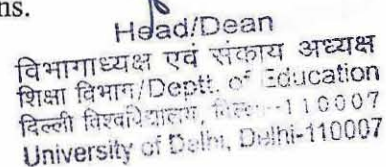 ns.
Head/Dean
विभागाध्यक्ष एवं संकाय अध्यक्ष
शिक्षा विभाग/Deptt. of Education
दिल्ली विश्वविद्यालय, -110007
University of Delhi, Delhi-110007